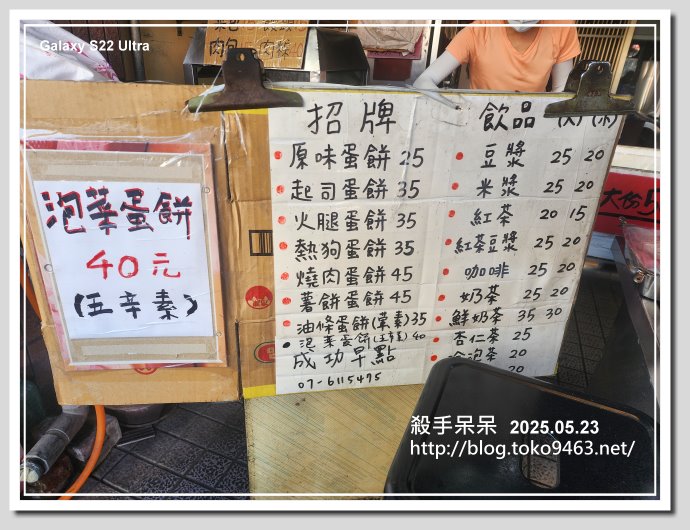 Galaxy S22 Ultra
肉包
泡菜蛋餅
40元
(五辛素)
招牌
原味蛋餅 25
起司蛋餅 35
火腿蛋餅 35
熱狗蛋餅 35
燒肉蛋餅 45
薯餅蛋餅 45
油條蛋餅(葷素)35
泡菜蛋餅(五辛素) 40
成功早點
07-6115475
飲品 (大) (中)
豆漿 25 20
米漿 25 20
紅茶 20 15
紅茶豆漿 25 20
咖啡 25 20
奶茶 25 20
鮮奶茶 35 30
杏仁茶 25
冷泡茶 20
20
殺手呆呆 2025.05.23
http://blog.toko9463.net/